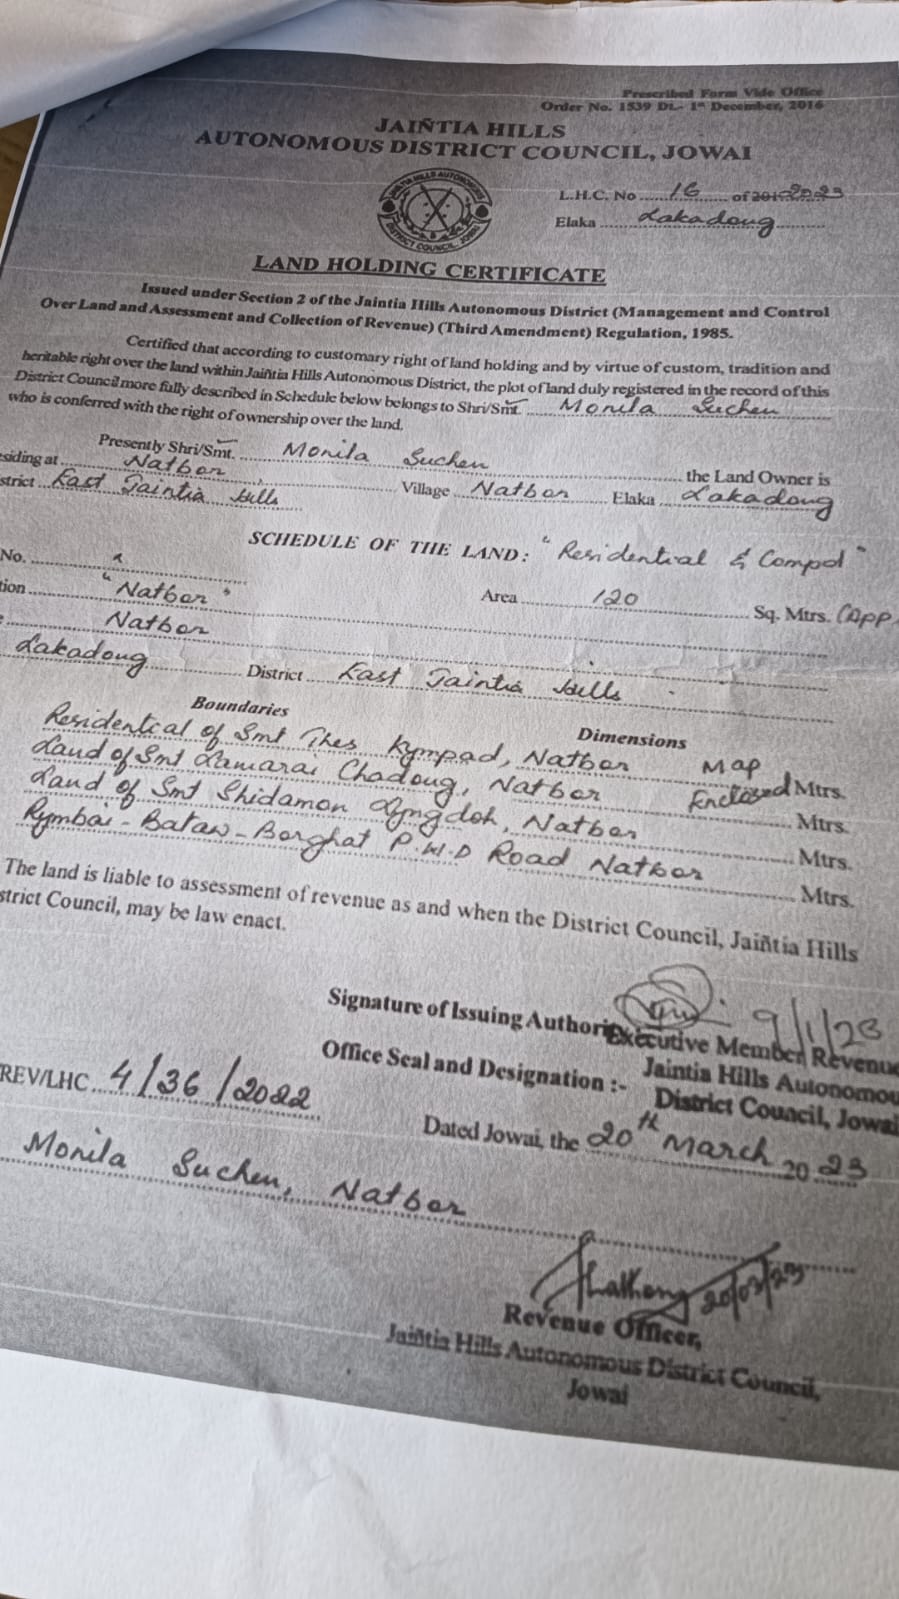 Prescribed Form Vide Office
Order No. 1539 Dt.- 1st December, 2016
JAIÑTIA HILLS
AUTONOMOUS DISTRICT COUNCIL, JOWAI
L.H.C. No ..... 16 ..... of 201 2023
Elaka ..... Lakadong .....
JAIÑTIA HILLS AUTONOMOUS DISTRICT COUNCIL, JOWAI
LAND HOLDING CERTIFICATE
Issued under Section 2 of the Jaintia Hills Autonomous District (Management and Control
Over Land and Assessment and Collection of Revenue) (Third Amendment) Regulation, 1985.
Certified that according to customary right of land holding and by virtue of custom, tradition and
heritable right over the land within Jaiñtia Hills Autonomous District, the plot of land duly registered in the record of this
District Council more fully described in Schedule below belongs to Shri/Smt. Monila Suchen
who is conferred with the right of ownership over the land.
Presently Shri/Smt. Monila Suchen ..... the Land Owner is
esiding at Natbor ..... Village Natbor Elaka Lakadong
strict East Jaintia Hills
SCHEDULE OF THE LAND: "Residential & Compd"
No. .....
tion "Natbor" Area 120 Sq. Mtrs. (App
Natbor
Lakadong District East Jaintia Hills
Boundaries Dimensions
Residential of Smt Thes Kympad, Natbor Map Mtrs.
Land of Smt Lamarai Chadong, Natbor Enclosed Mtrs.
Land of Smt Shidamon Lyngdoh, Natbor Mtrs.
Rymbai - Bataw - Borghat P.W.D Road Natbor Mtrs.
The land is liable to assessment of revenue as and when the District Council, Jaiñtia Hills
strict Council, may be law enact.
Signature of Issuing Authori 9/1/23
Executive Member Revenue
Office Seal and Designation :- Jaintia Hills Autonomou
District Council, Jowai
REV/LHC 4/36/2022
Dated Jowai, the 20th March 2023
Monila Suchen, Natbor
20/03/23
Revenue Officer,
Jaiñtia Hills Autonomous District Council,
Jowai